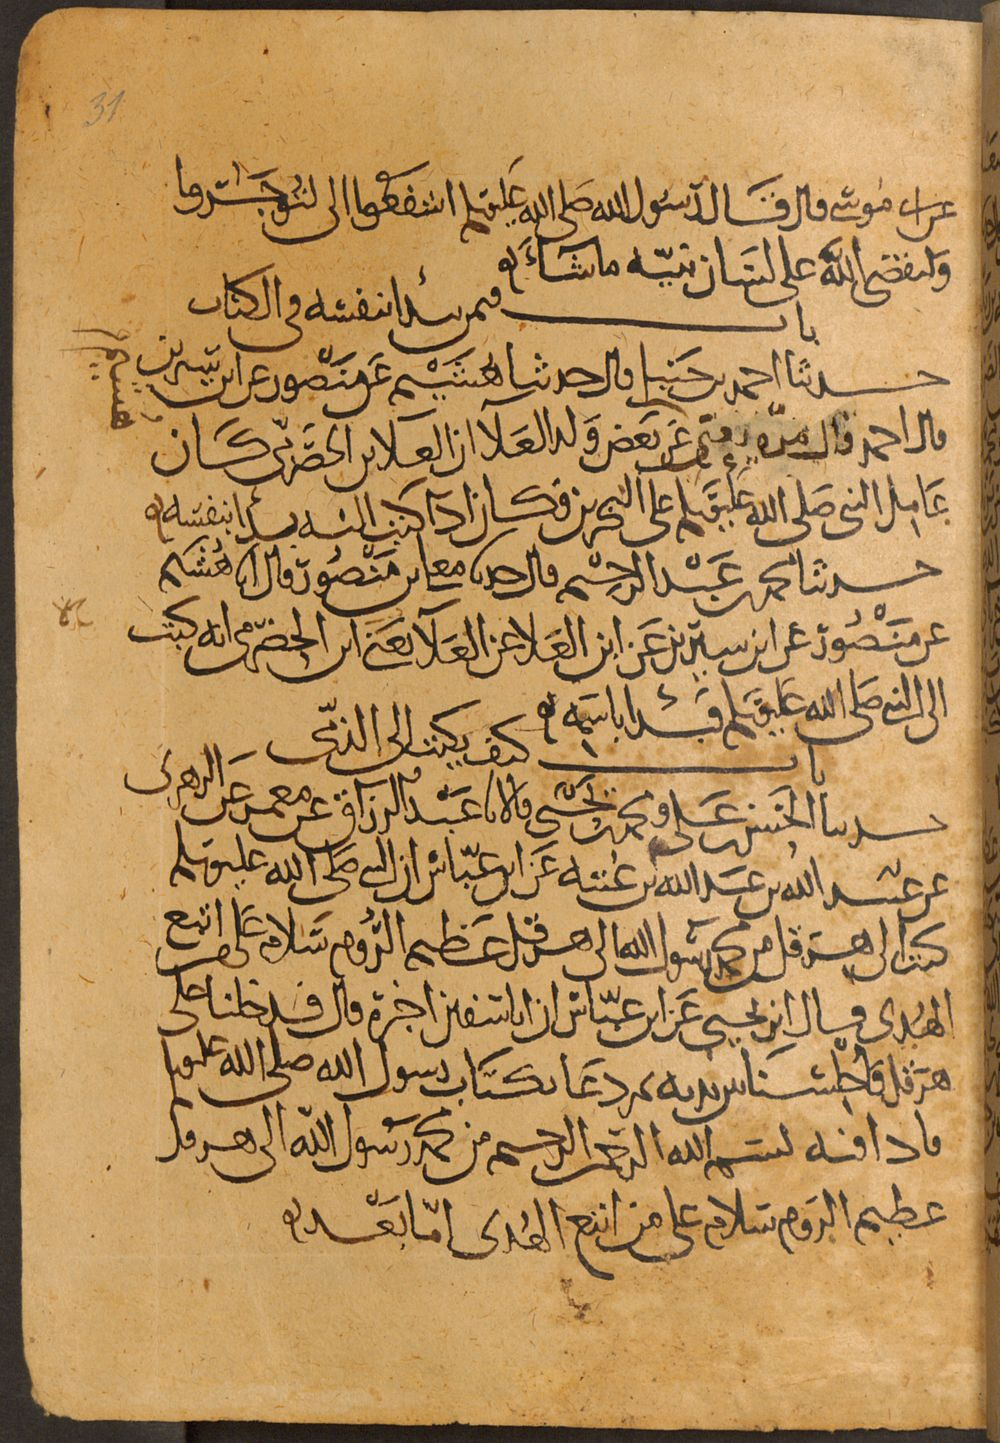 31
عن ابى موسى قال قال رسول الله صلى الله عليه وسلم اشفعوا الى لتوجروا
وليقضى الله على لسان نبيه ما شاء
باب فيمن يبدا بنفسه فى الكتاب
حدثنا احمد بن حنبل قال حدثنا هشيم عن منصور عن ابن سيرين
هشيم
قال احمد قال مرة يعنى عن بعض ولد العلا ان العلا بن الحضرمى كان
عامل النبى صلى الله عليه وسلم على البحرين فكان اذا كتب اليه بدا بنفسه
حدثنا محمد بن عبد الرحيم قال حدثنا معلى بن منصور قال انا هشيم
عن منصور عن ابن سيرين عن ابن العلا عن العلا يعنى ابن الحضرمى انه كتب
الى النبى صلى الله عليه وسلم فبدا باسمه
باب كيف يكتب الى الذمى
حدثنا الحسن بن على ومحمد بن يحيى قالا نا عبد الرزاق عن معمر عن الزهرى
عن عبيد الله بن عبد الله بن عتبة عن ابن عباس ان النبى صلى الله عليه وسلم
كتب الى هرقل من محمد رسول الله الى هرقل عظيم الروم سلام على من اتبع
الهدى وقال ابن يحيى عن ابن عباس ان ابا سفين اخبره قال فدخلنا على
هرقل فاجلسنا بين يديه ثم دعا بكتاب رسول الله صلى الله عليه وسلم
فاذا فيه بسم الله الرحمن الرحيم من محمد رسول الله الى هرقل
عظيم الروم سلام على من اتبع الهدى اما بعد